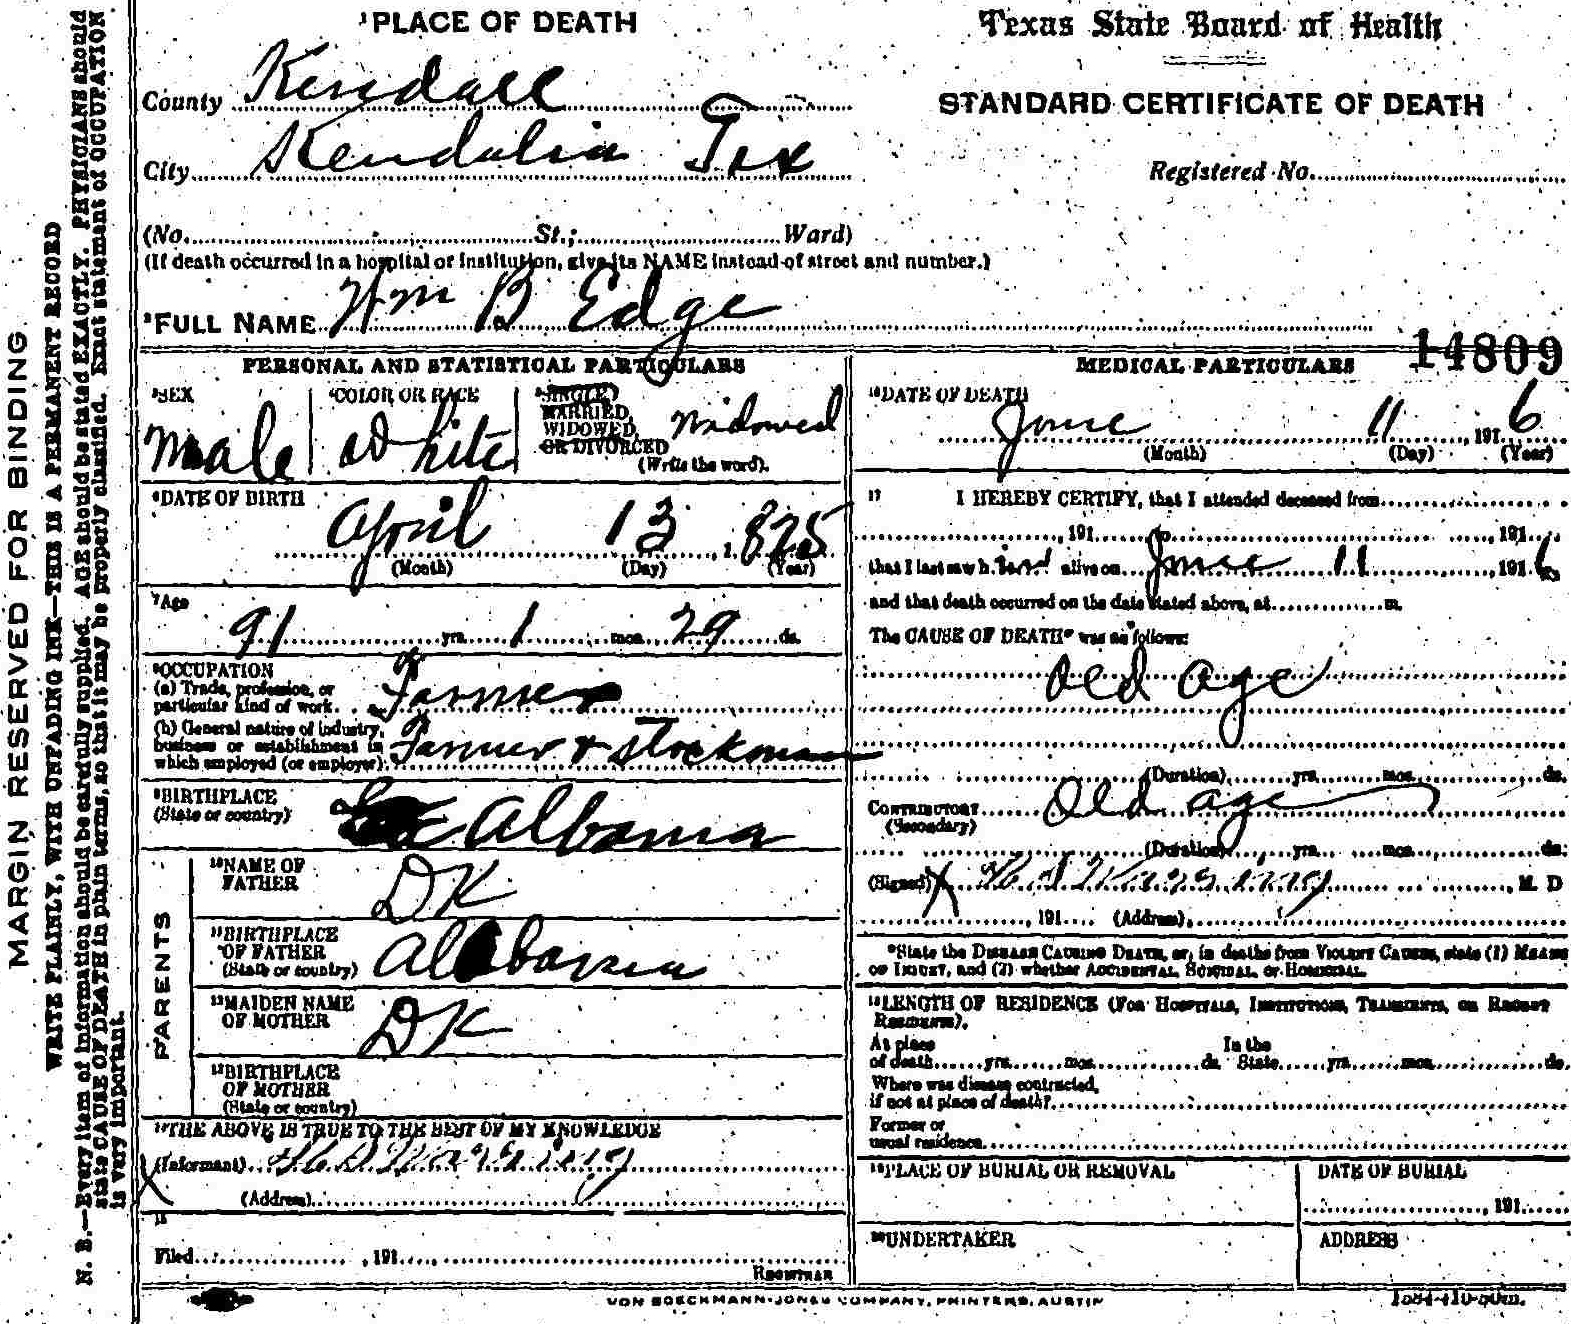 MARGIN RESERVED FOR BINDING
WRITE PLAINLY, WITH UNFADING INK—THIS IS A PERMANENT RECORD
N. B.—Every item of information should be carefully supplied. AGE should be stated EXACTLY. PHYSICIANS should
state CAUSE OF DEATH in plain terms, so that it may be properly classified. Exact statement of OCCUPATION
is very important.
1 PLACE OF DEATH
Texas State Board of Health
County Kendall
STANDARD CERTIFICATE OF DEATH
City Kendalia Tex
Registered No.
(No. St.; Ward)
(If death occurred in a hospital or institution, give its NAME instead of street and number.)
2 FULL NAME Wm B Edge
14809
PERSONAL AND STATISTICAL PARTICULARS
3 SEX
male
4 COLOR OR RACE
White
5 SINGLE,
MARRIED,
WIDOWED,
OR DIVORCED
(Write the word).
Widowed
6 DATE OF BIRTH
April 13, 1825
(Month) (Day) (Year)
7 Age
91 yrs. 1 mos. 29 ds.
8 OCCUPATION
(a) Trade, profession, or
particular kind of work. Farmer
(b) General nature of industry,
business or establishment in
which employed (or employer). Farmer & stockman
9 BIRTHPLACE
(State or country)
Albama
PARENTS
10 NAME OF
FATHER
DK
11 BIRTHPLACE
OF FATHER
(State or country)
Alabama
12 MAIDEN NAME
OF MOTHER
DK
13 BIRTHPLACE
OF MOTHER
(State or country)
14 THE ABOVE IS TRUE TO THE BEST OF MY KNOWLEDGE
X (Informant)
(Address)
15
Filed , 191
REGISTRAR
MEDICAL PARTICULARS
16 DATE OF DEATH
June 11, 1916
(Month) (Day) (Year)
17 I HEREBY CERTIFY, that I attended deceased from
, 191 to , 191
that I last saw him alive on June 11, 1916
and that death occurred on the date stated above, at m.
The CAUSE OF DEATH* was as follows:
Old age
(Duration) yrs. mos. ds.
CONTRIBUTORY Old age
(Secondary)
(Duration) yrs. mos. ds.
(Signed) X , M. D
, 191 (Address)
*State the DISEASE CAUSING DEATH, or, in deaths from VIOLENT CAUSES, state (1) MEANS
OF INJURY, and (2) whether ACCIDENTAL, SUICIDAL, or HOMICIDAL.
18 LENGTH OF RESIDENCE (FOR HOSPITALS, INSTITUTIONS, TRANSIENTS, OR RECENT
RESIDENTS).
At place In the
of death yrs. mos. ds. State yrs. mos. ds.
Where was disease contracted,
if not at place of death?
Former or
usual residence
19 PLACE OF BURIAL OR REMOVAL
DATE OF BURIAL
, 191
20 UNDERTAKER
ADDRESS
VON BOECKMANN-JONES COMPANY, PRINTERS, AUSTIN